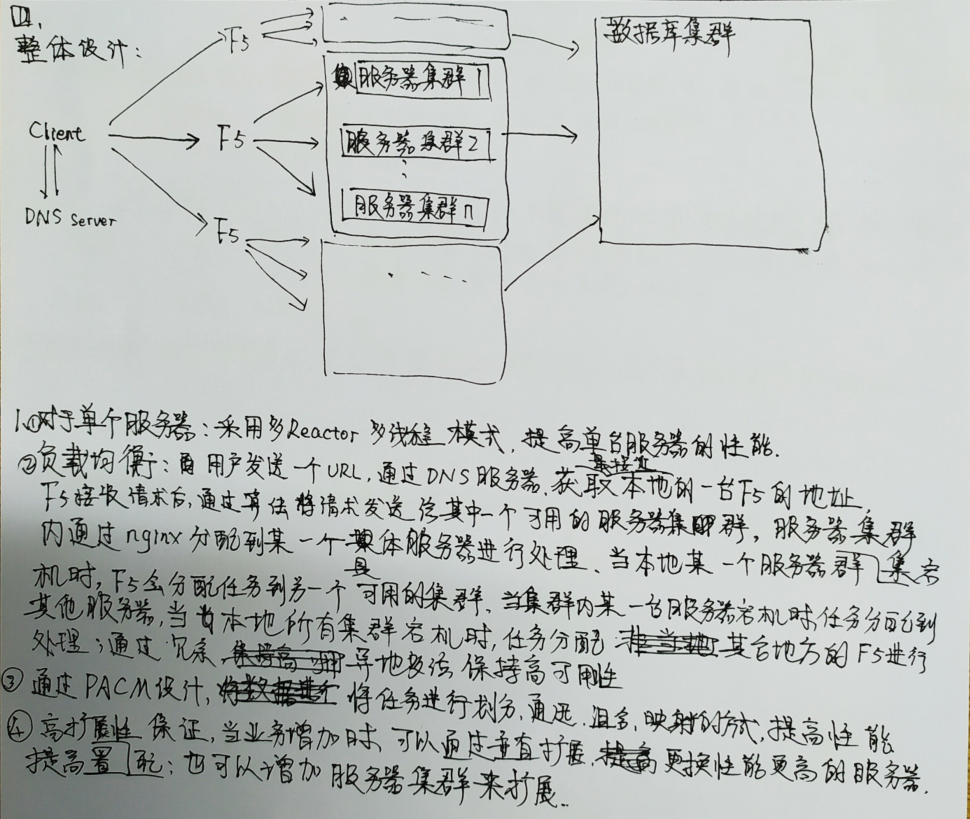 四、
整体设计:
F5
数据库集群
服务器集群1
Client
F5
服务器集群2
DNS Server
服务器集群n
F5
1.①对于单个服务器:采用多Reactor多线程模式,提高单台服务器的性能.
②负载均衡:用户发送一个URL,通过DNS服务器,获取本地的一台F5的地址,
F5接收请求后,通过算法将请求发送给其中一个可用的服务器集群,服务器集群
内通过nginx分配到某一个具体服务器进行处理、当本地某一个服务器集群宕
机时,F5会分配任务到另一个可用的集群、当集群内某一台服务器宕机时,任务分配到
其他服务器,当本地所有集群宕机时,任务分配其它地方的F5进行
处理;通过冗余,异地多活,保持高可用性
③通过PACM设计,将任务进行划分,通迅,组合,映射的方式,提高性能
④高扩展性保证,当业务增加时,可以通过垂直扩展,更换性能更高的服务器.
提高配置;也可以增加服务器集群来扩展..